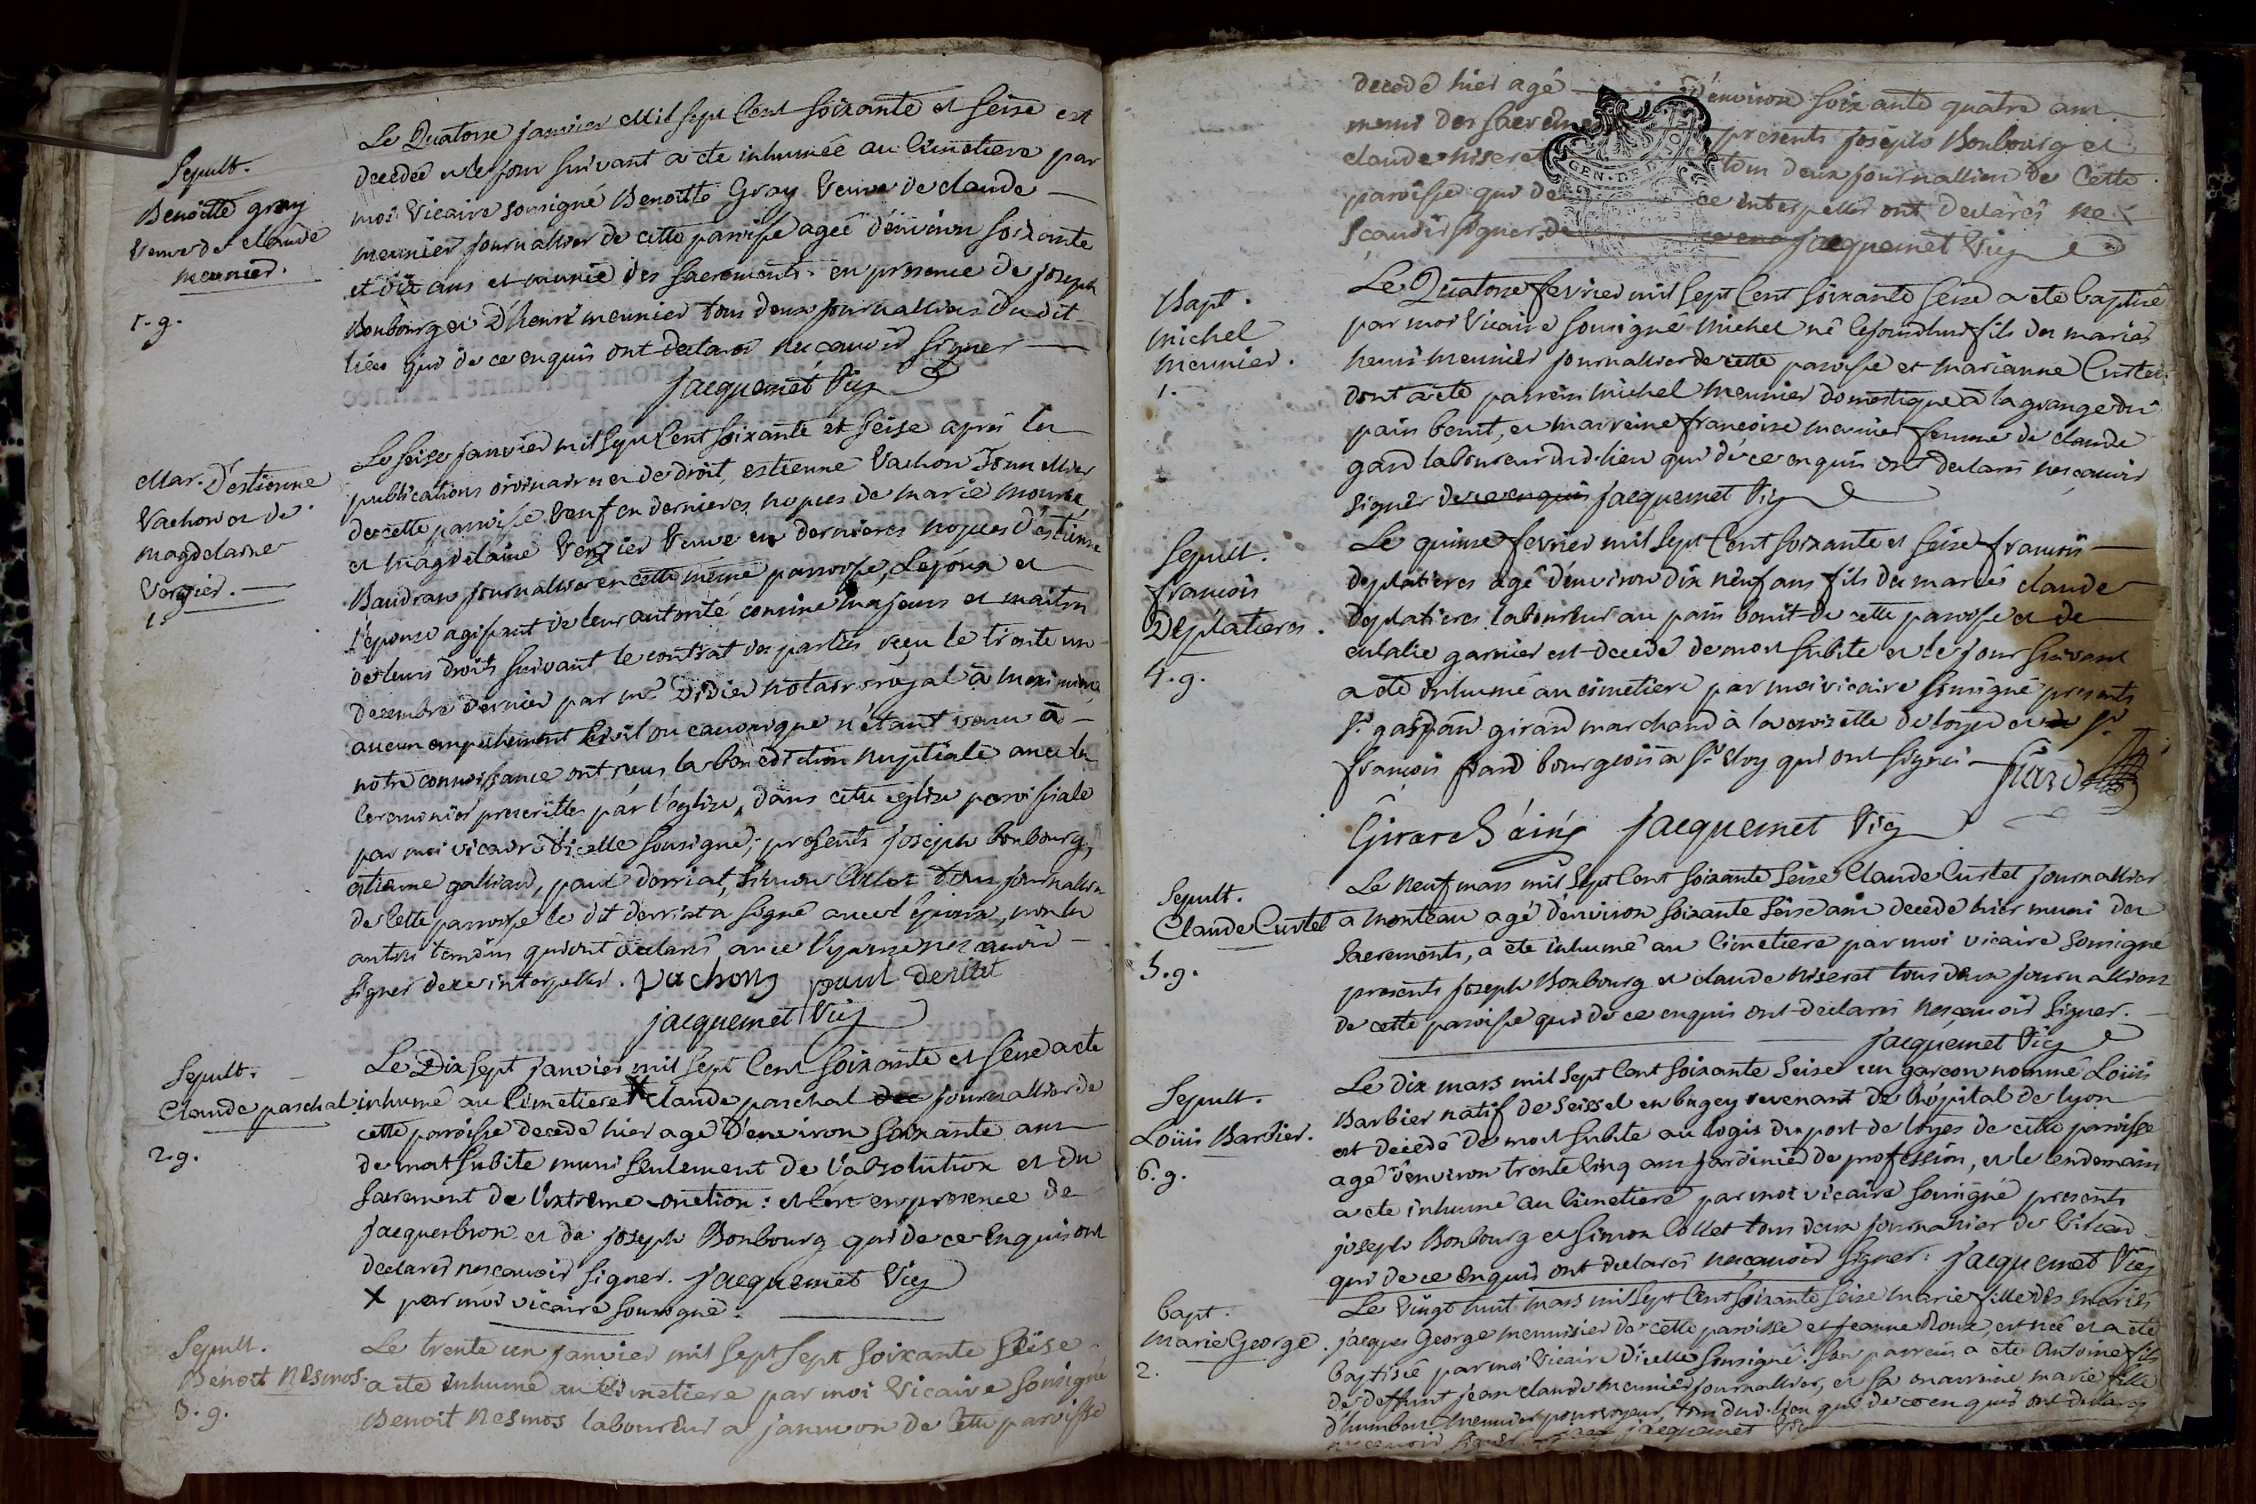 Sepult.
Benoitte gray
veuve de claude
meunier.
1. g.
Le Quatorse janvier Mil sept Cent soixante et seise est
decedée et le jour suivant a été inhumée au cimetiere par
moi vicaire sousigné Benoitte Gray veuve de claude
meunier journallier de cette paroisse agée d'environ soixante
et dix ans et munie des sacrements. en presence de joseph
Bonbourg et d'henri meunier tous deux journalliers du dit
lieu qui de ce enquis ont declaré ne sçavoir signer
jacquemet Vic
Mar. d'estienne
Vachon et de
magdelaine
Vergier.
1.
Le seise janvier mil sept Cent soixante et seise après les
publications ordinaires et de droit, estienne Vachon journallier
de cette paroisse veuf en dernieres nopces de marie
et magdelaine Vergier veuve en dernieres nopces d'estienne
Baudran journallier en cette même paroisse, L'époux et
L'épouse agissant de leur autorité comme majeurs et maitres
de leurs droits suivant le contrat des parties reçu le trente un
decembre dernier par me Didier notaire royal à
aucun empechement civil ou canonique n'étant venu à
notre connoissance ont reçu la benediction nuptiale avec les
ceremonies prescrittes par l'église, dans cette église paroissiale
par moi vicaire d'icelle sousigné; presents joseph bonbourg,
estienne galland, paul derriat, simon Collet tous journalliers
de cette paroisse le dit derriat a signé avec l'époux, non les
autres temoins qui ont declaré avec l'épouse ne sçavoir
signer de ce interpellés. vachong paul deriat
jacquemet Vic
Sepult.
Claude paschal
2. g.
Le Dix sept janvier mil sept Cent soixante et seise a été
inhumé au Cimetiere X claude paschal journallier de
cette paroisse decedé hier agé d'environ soixante ans
de mort subite muni seulement de l'absolution et du
sacrement de l'extreme onction: et c'est en presence de
jacques bron et de joseph Bonbourg qui de ce enquis ont
declaré ne sçavoir signer. jacquemet Vic
X par moi vicaire sousigné.
Sepult.
Benoit Nesmos.
3. g.
Le trente un janvier mil sept sept soixante seise
a été inhumé au Cimetiere par moi vicaire sousigné
Benoit Nesmos laboureur a janivon de cette paroisse
decedé hier agé d'environ soixante quatre ans
muni des sacrements presents joseph Bonbourg et
claude miseret tous deux journalliers de Cette
paroisse qui de ce interpellés ont declarés ne
sçavoir signer. jacquemet Vic
GEN. DE D
Bapt.
michel
meunier.
1.
Le Quatorse fevrier mil sept Cent soixante seise a été baptisé
par moi vicaire sousigné michel né le jourdhui fils des mariés
henri meunier journallier de cette paroisse et marianne Curtet
dont a été parrein michel meunier domestique à la grange du
pain benit, et marreine françoise meunier femme de claude
gard laboureur du d. lieu qui de ce enquis ont declaré ne sçavoir
signer de ce enquis jacquemet Vic
Sepult.
françois
Deplatieres.
4. g.
Le quinse fevrier mil sept Cent soixante et seise françois
deplatieres agé d'environ dix neuf ans fils des mariés claude
deplatieres laboureur au pain benit de cette paroisse et de
eulalie garnier est decedé de mort subite et le jour suivant
a été inhumé au cimetiere par moi vicaire sousigné presents
sr. gaspard girard marchand à la croisette de loyes et sr.
françois fiard bourgeois a st. Eloy qui ont signés. fiard
Girard L'ainé jacquemet Vic
Sepult.
Claude Curtet
5. g.
Le neuf mars mil sept Cent soixante seise Claude Curtet journallier
a monteau agé d'environ soixante seise ans decedé hier muni des
sacrements, a été inhumé au Cimetiere par moi vicaire sousigné
presents joseph Bonbourg et claude miseret tous deux journalliers
de cette paroisse qui de ce enquis ont declaré ne sçavoir signer.
jacquemet Vic
Sepult.
Loüis Barbier.
6. g.
Le dix mars mil sept Cent soixante seise un garçon nommé Loüis
Barbier natif de seissel en bugey revenant de l'hôpital de lyon
est decedé de mort subite au logis du port de loyes de cette paroisse
agé d'environ trente cinq ans jardinier de profession, et le lendemain
a été inhumé au cimetiere par moi vicaire sousigné presents
joseph Bonbourg et simon Collet tous deux journalier de
qui de ce enquis ont declarés ne sçavoir signer. jacquemet Vic
bapt.
marie George.
2.
Le Vingt huit mars mil sept Cent soixante seise marie fille des mariés
jacques George menuisier de cette paroisse et jeanne Roux, est née et a été
baptisée par moi vicaire d'icelle sousigné. son parrein a été Antoine fils
de deffunt jean claude meunier journallier, et sa marreine marie fille
d'humbert meunier tous du d. lieu qui de ce enquis ont declaré
ne sçavoir signer. jacquemet Vic